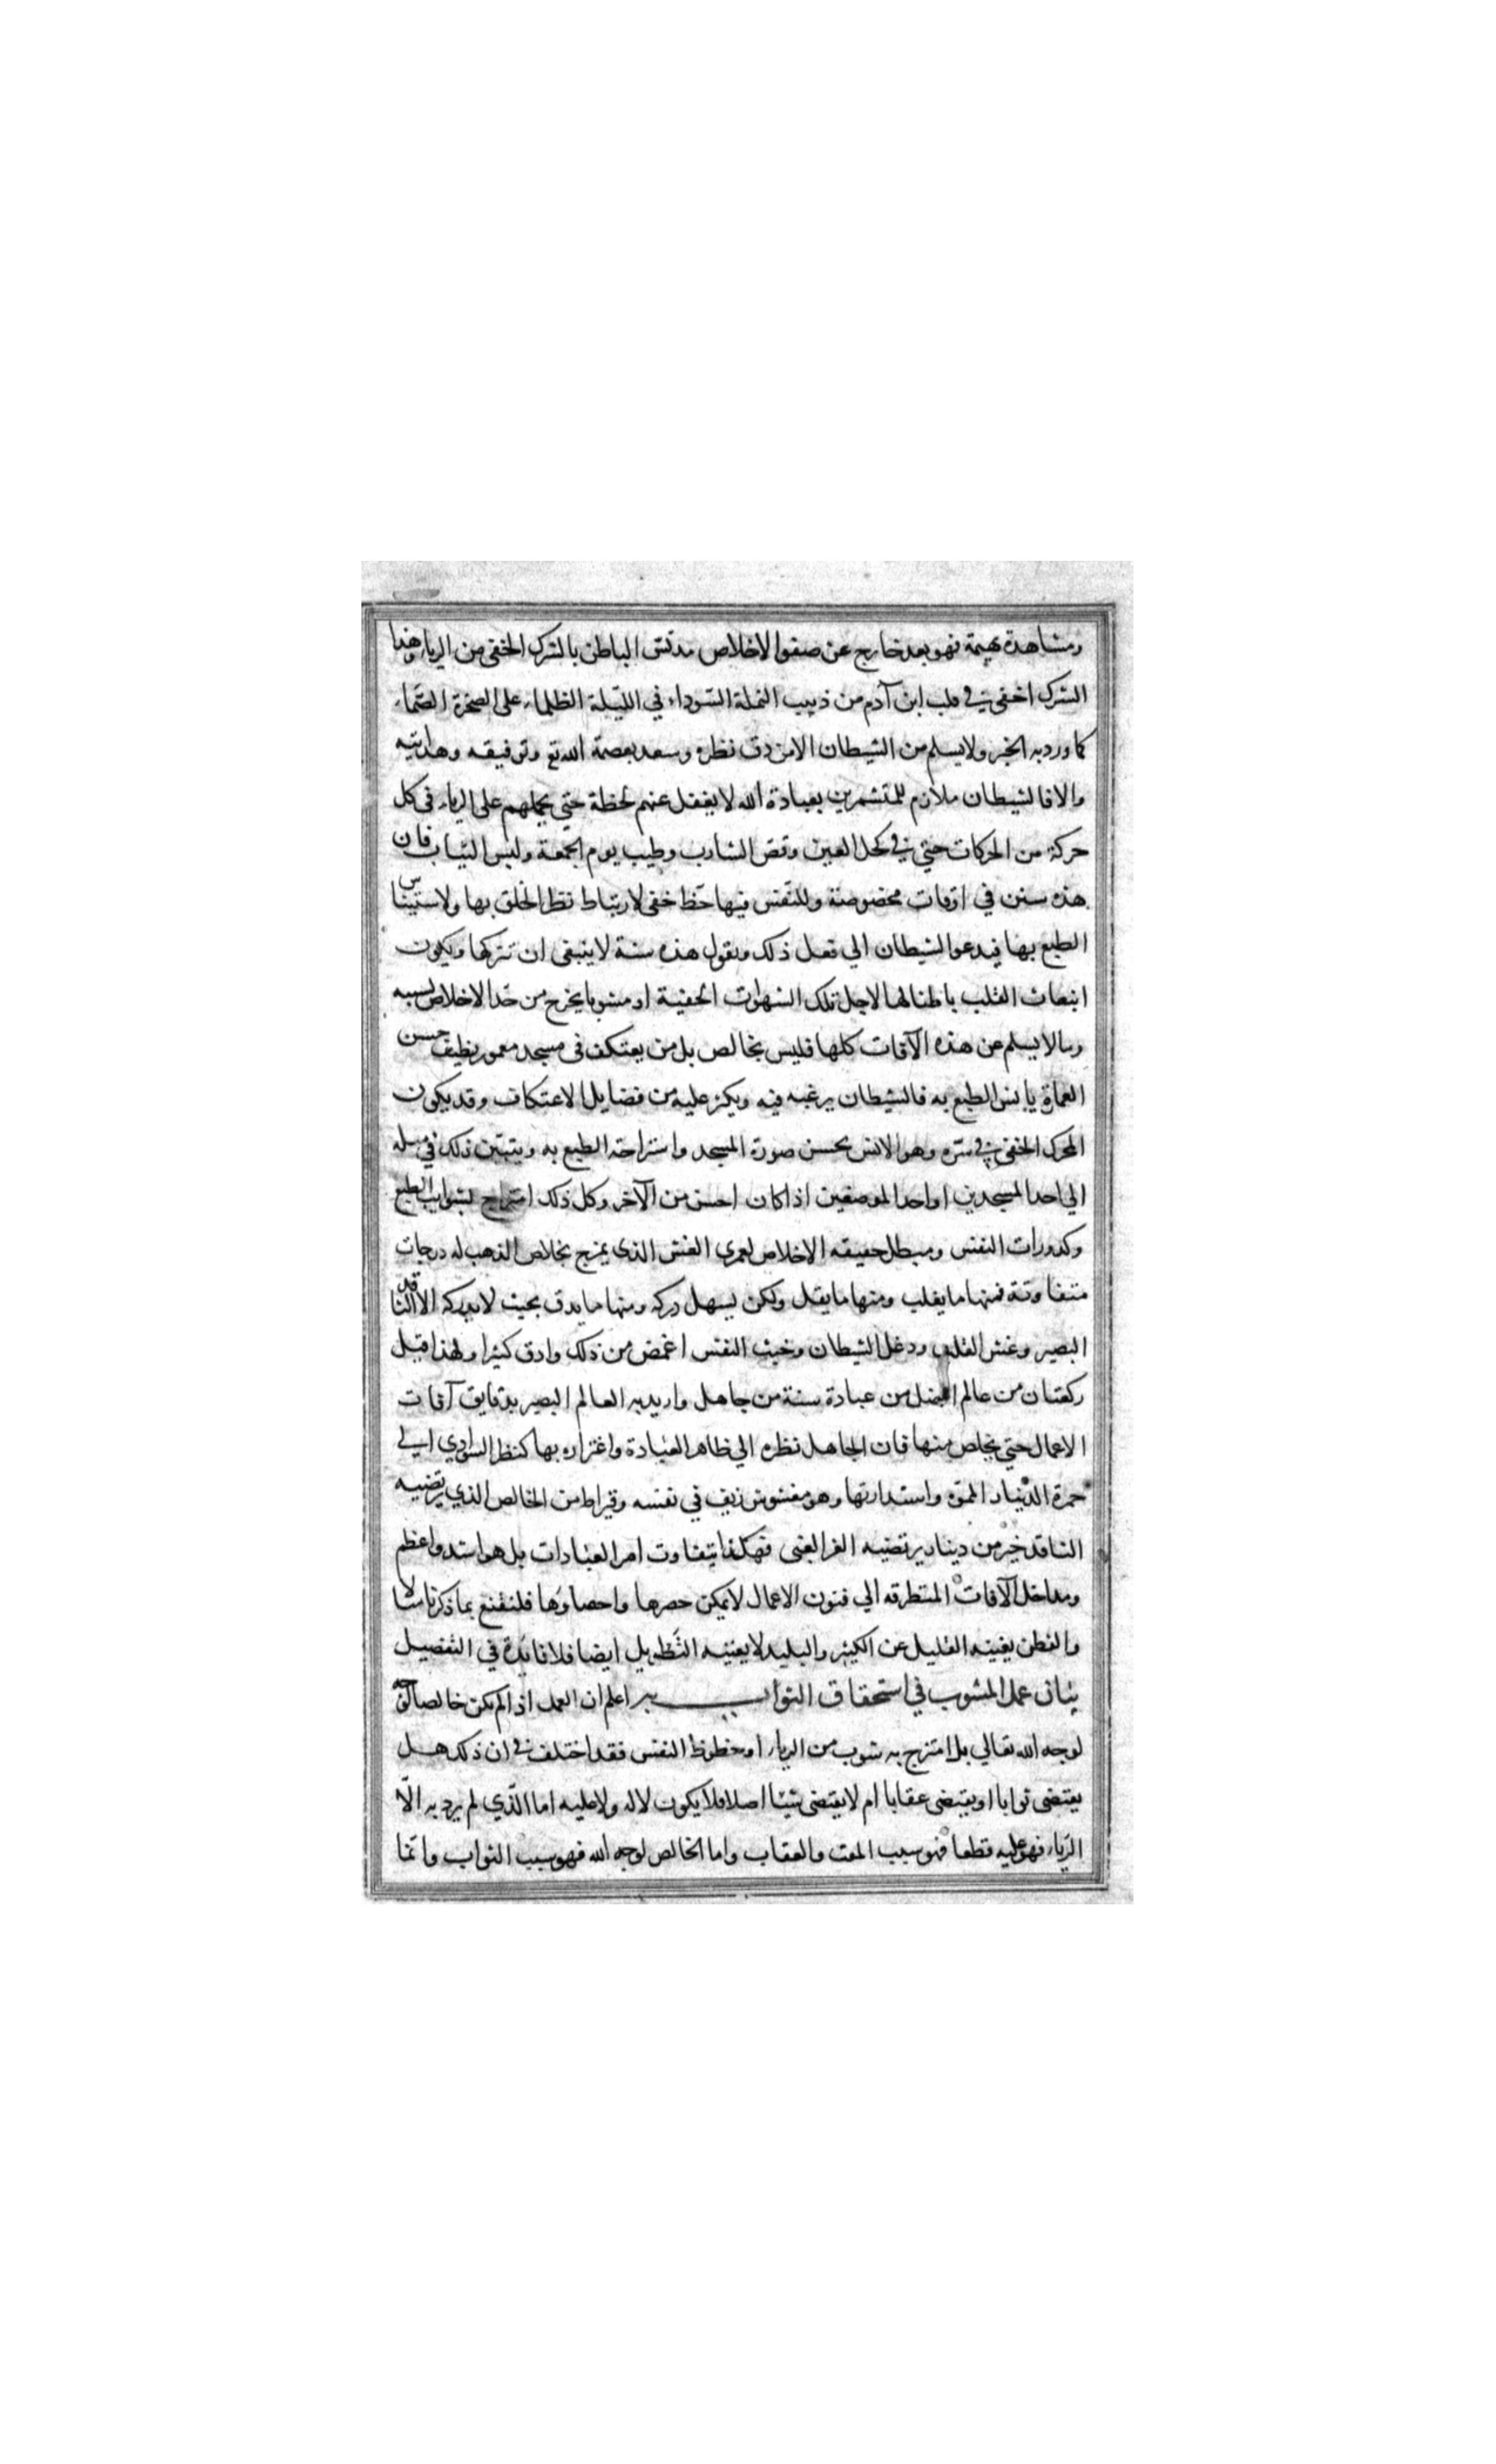 ومشاهدة بهيمة فهو بعد خارج عن صفو الاخلاص مدنس الباطن بالشرك الخفي من الرياء وهذا
الشرك اخفى في قلب ابن آدم من ذبيب النملة السوداء في الليلة الظلماء على الصخرة الصماء
كما ورد به الخبر ولا يسلم من الشيطان الا من دق نظره وسعد بعصمة الله تع وتوفيقه وهدايته
والا فالشيطان ملازم للمتشمرين بعبادة الله لا يغفل عنهم لحظة حتي يحملهم على الرياء في كل
حركة من الحركات حتي في كحل العين وقص الشارب وطيب يوم الجمعة ولبس الثياب فان
هذه سنن في اوقات مخصوصة وللنفس فيها حظ خفي لارتباط نظر الخلق بها ولاستيناس
الطبع بها فيدعو الشيطان الي فعل ذلك ويقول هذه سنة لا ينبغي ان تتركها ويكون
انبعاث القلب باطنا لها لاجل تلك الشهوات الخفية او مشوبا يخرج من حد الاخلاص لسببه
وما لا يسلم عن هذه الآفات كلها فليس بخالص بل من يعتكف في مسجد معمور نظيف حسن
العمارة يانس الطبع به فالشيطان يرغبه فيه ويكثر عليه من فضايل الاعتكاف وقد يكون
المحرك الخفي في سره وهو الانس بحسن صورة المسجد واستراحة الطبع به ويتبين ذلك في ميله
الي احد المسجدين او احد الموضعين اذا كان احسن من الآخر وكل ذلك امتزاج بشوايب الطبع
وكدورات النفس ومبطل حقيقه الاخلاص لعمري الغش الذي يمزج بخلاص الذهب له درجات
متفاوتة فمنها ما يغلب ومنها ما يقل ولكن يسهل دركه ومنها ما يدق بحيث لا يدركه الا الناقد
البصير وغش القلب ودغل الشيطان وخبث النفس اغمض من ذلك وادق كثيرا ولهذا قيل
ركعتان من عالم افضل من عبادة سنة من جاهل واريد به العالم البصير بدقايق آفات
الاعمال حتي يخلص منها فان الجاهل نظره الي ظاهر العبادة واغتراره بها كنظر السوادي الي
حمرة الدينار المموه واستدارتها وهو مغشوش زيف في نفسه وقيراط من الخالص الذي يرتضيه
الناقد خير من دينار يرتضيه الغر الغبي فهكذا يتفاوت امر العبادات بل هو اشد واعظم
ومداخل الآفات المتطرقه الي فنون الاعمال لا يمكن حصرها واحصاوها فلنقنع بما ذكرنا مثالا
والفطن يغنيه القليل عن الكثير والبليد لا يغنيه التطويل ايضا فلا فايدة في التفصيل
بيان عمل المشوب في استحقاق الثواب به اعلم ان العمل اذا لم يكن خالصا
لوجه الله تعالي بل امتزج به شوب من الرياء او حظوظ النفس فقد اختلف في ان ذلك هل
يقتضي ثوابا او يقتضي عقابا ام لا يقتضي شيئا اصلا فلا يكون لا له ولا عليه اما الذي لم يرد به الا
الرياء فهو عليه قطعا فهو سبب المقت والعقاب واما الخالص لوجه الله فهو سبب الثواب وانما